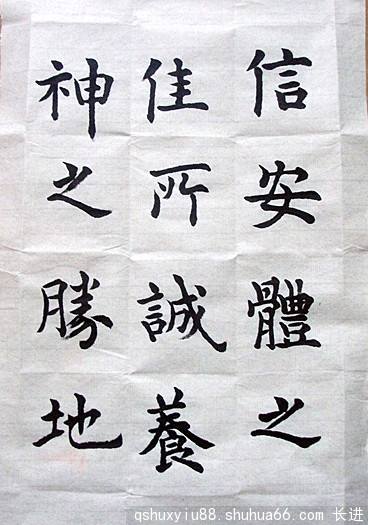 信安體之
佳所誠養
神之勝地
qshuxyiu88.shuhua66.com 长进